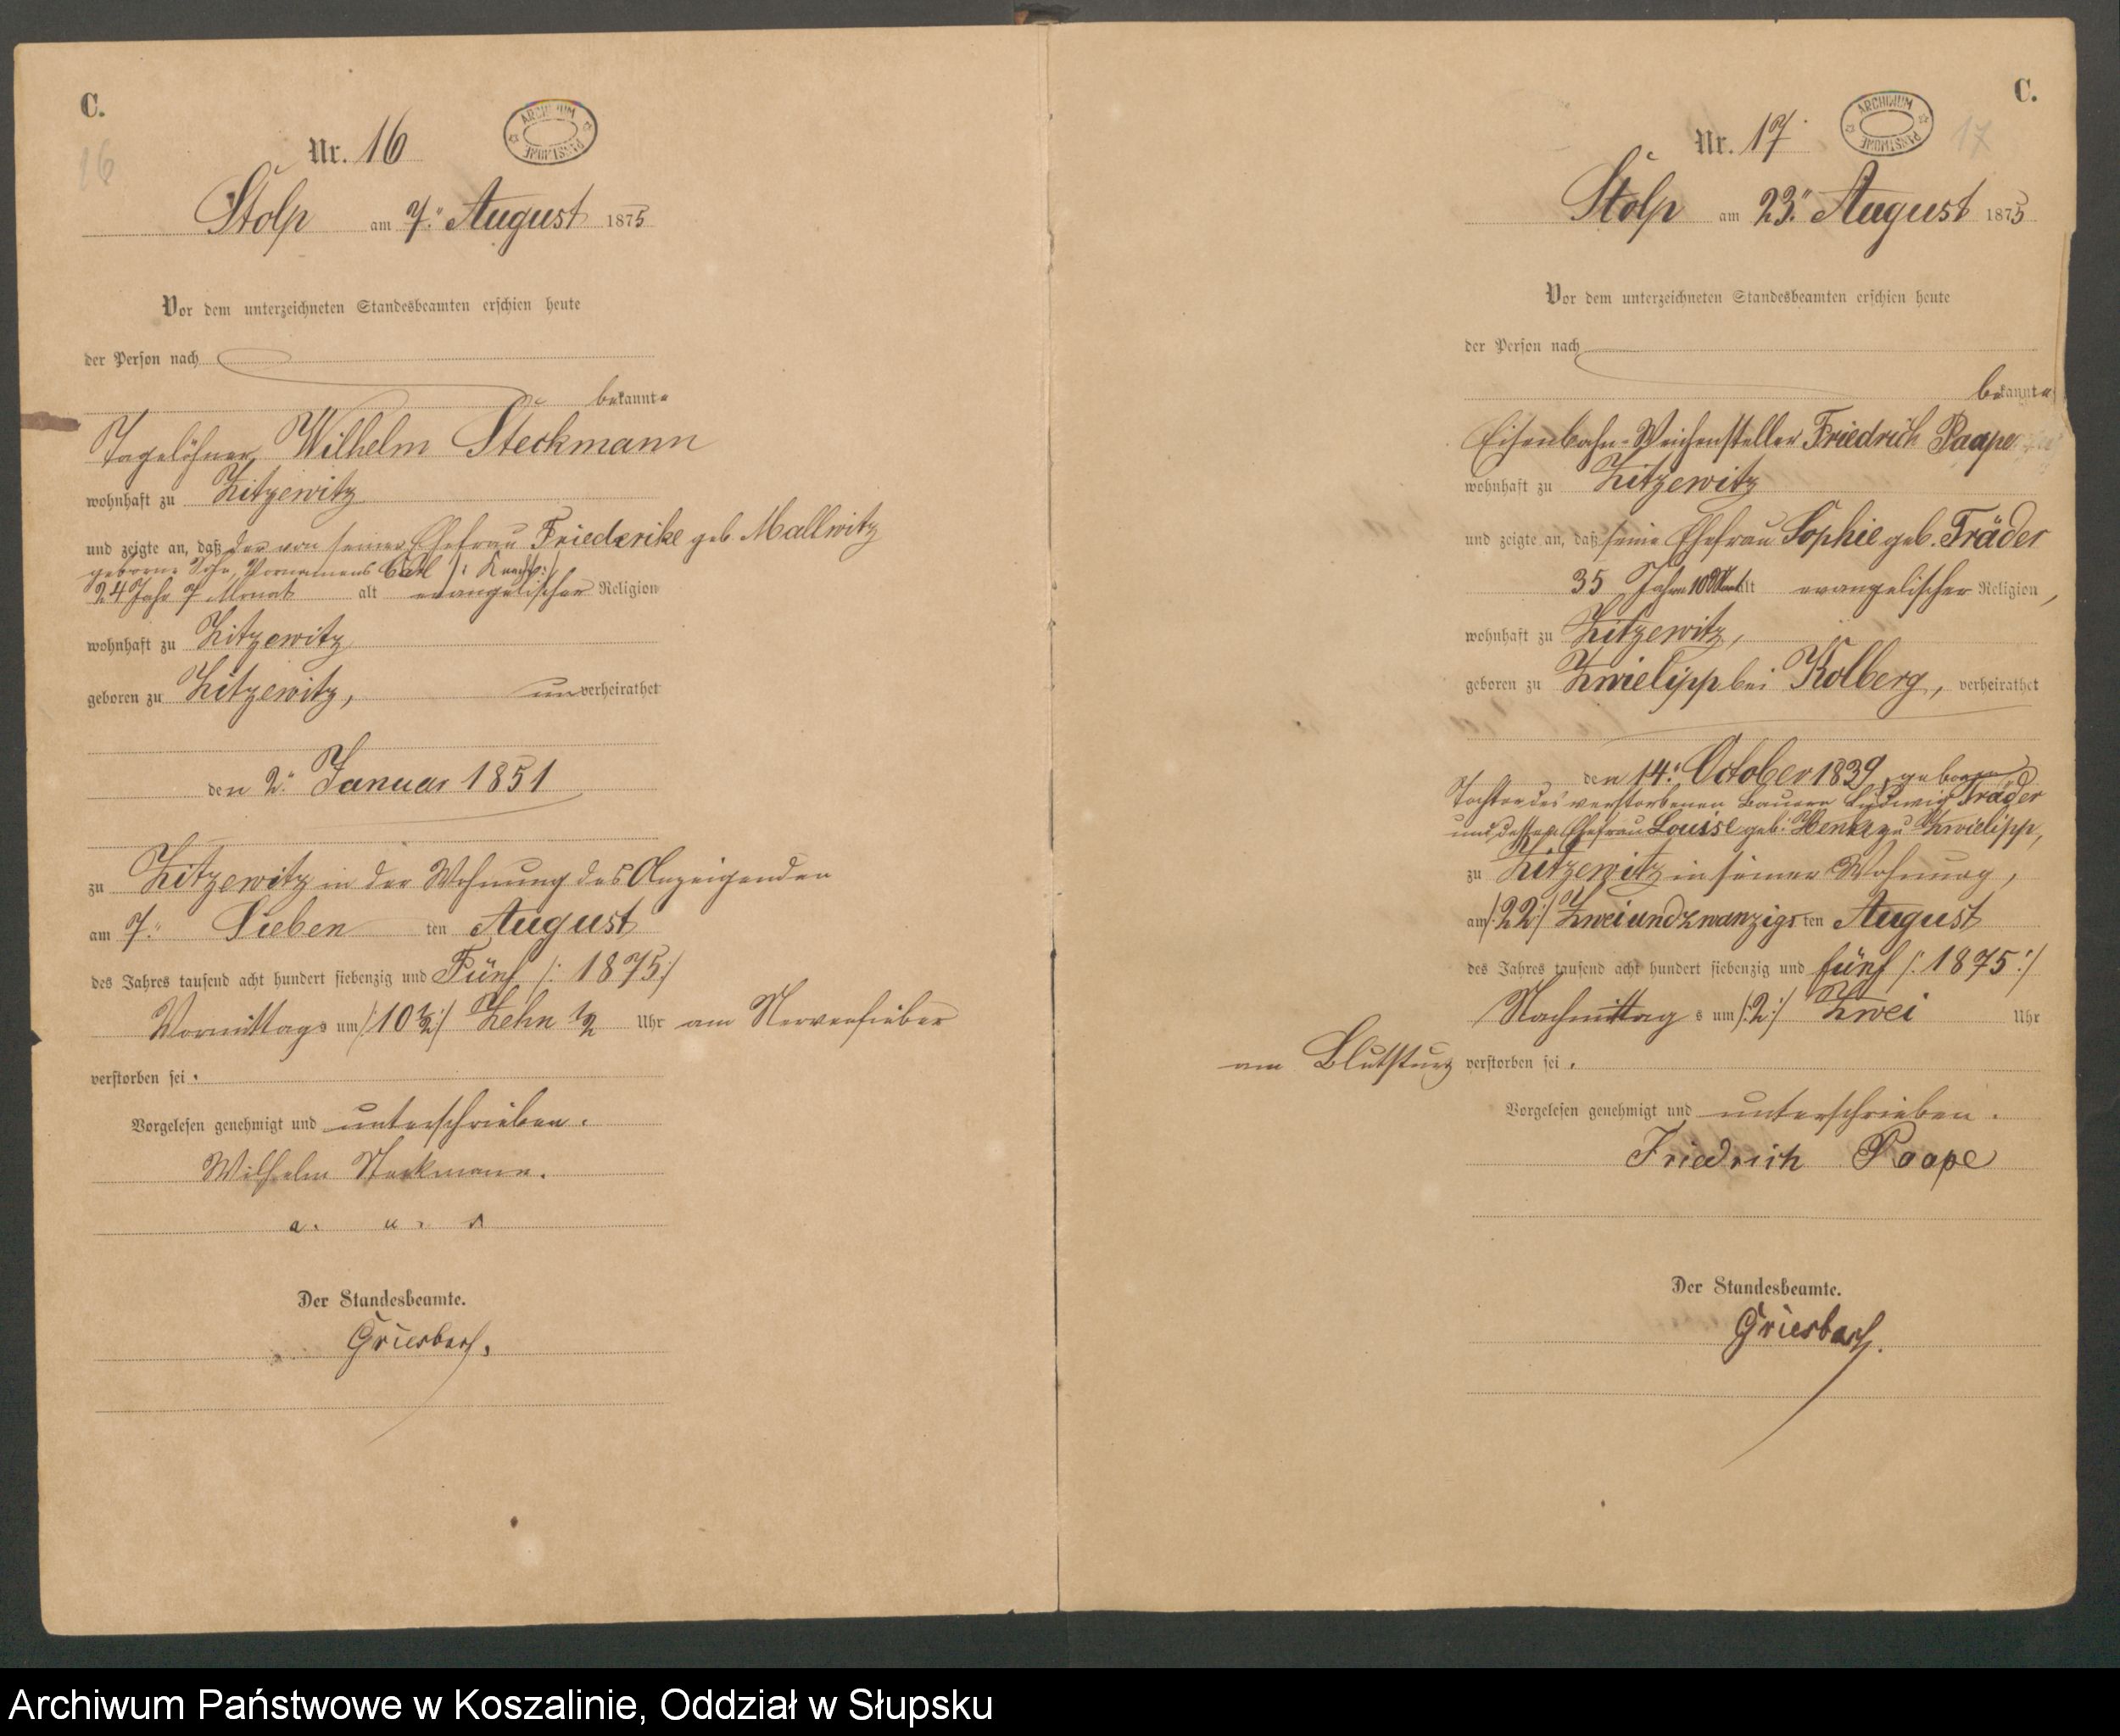 C.
16
Nr. 16
ARCHIWUM PAŃSTWOWE
Stolp am 7. August 1875
Vor dem unterzeichneten Standesbeamten erschien heute
der Person nach
bekannte
Tagelöhner Wilhelm Steckmann
wohnhaft zu Zitzewitz
und zeigte an, daß der von seiner Ehefrau Friederike geb. Mallwitz
geborne Sohn, Vornamens Carl /: Knecht :/
24 Jahr 7 Monat alt evangelischer Religion
wohnhaft zu Zitzewitz
geboren zu Zitzewitz, unverheirathet
den 2. Januar 1851
zu Zitzewitz in der Wohnung des Anzeigenden
am 7. Sieben ten August
des Jahres tausend acht hundert siebenzig und Fünf /: 1875 :/
Vormittags um /: 10 1/2 :/ Zehn 1/2 Uhr am Nervenfieber
verstorben sei.
Vorgelesen genehmigt und unterschrieben.
Wilhelm Steckmann.
a. u. s
Der Standesbeamte.
Griesbach.
C.
17
Nr. 17
ARCHIWUM PAŃSTWOWE
Stolp am 23. August 1875
Vor dem unterzeichneten Standesbeamten erschien heute
der Person nach
bekannte
Eisenbahn-Weichensteller Friedrich Paape
wohnhaft zu Zitzewitz
und zeigte an, daß seine Ehefrau Sophie geb. Träder
35 Jahre 10 Monat alt evangelischer Religion,
wohnhaft zu Zitzewitz,
geboren zu Zwielipp bei Kolberg, verheirathet
den 14. October 1839 geboren
Tochter des verstorbenen Bauern Ludwig Träder
und dessen Ehefrau Louise geb. Henke zu Zwielipp,
zu Zitzewitz in seiner Wohnung,
am /: 22 :/ Zweiundzwanzigsten August
des Jahres tausend acht hundert siebenzig und fünf /: 1875 :/
Nachmittag s um /: 2 :/ Zwei Uhr
am Blutsturz verstorben sei.
Vorgelesen genehmigt und unterschrieben.
Friedrich Paape
Der Standesbeamte.
Griesbach.
Archiwum Państwowe w Koszalinie, Oddział w Słupsku